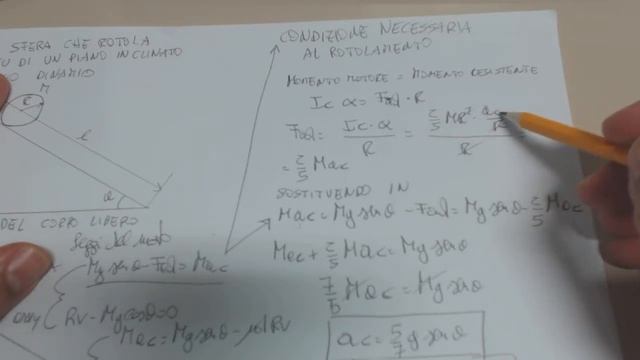 SFERA CHE ROTOLA
SU DI UN PIANO INCLINATO
DINAMICO
M
R
l
θ
DEL CORPO LIBERO
Mg senθ - Fad = Mac
RV - Mg cosθ = 0
Mac = Mg senθ - μd RV
CONDIZIONE NECESSARIA
AL ROTOLAMENTO
MOMENTO MOTORE = MOMENTO RESISTENTE
Ic α = Fad · R
Fad = Ic · α / R = 2/5 MR² · ac/R / R
= 2/5 Mac
SOSTITUENDO IN
Mac = Mg senθ - Fad = Mg senθ - 2/5 Mac
Mac + 2/5 Mac = Mg senθ
7/5 Mac = Mg senθ
ac = 5/7 g senθ